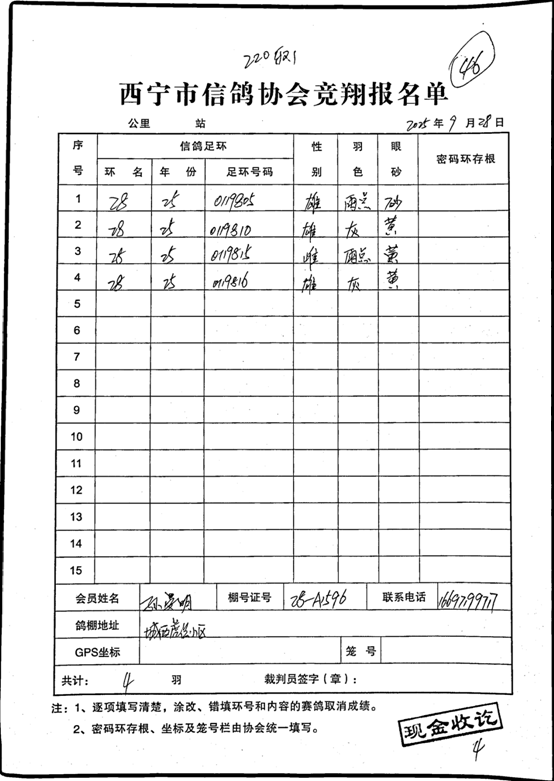 46
西宁市信鸽协会竞翔报名单
公里 站 2025年9月28日
序号 信鸽足环 性别 羽色 眼砂 密码环存根
环名 年份 足环号码
1 28 25 0119805 雄 雨点 砂
2 28 25 0119810 雄 灰 黄
3 25 25 0119815 雌 雨点 黄
4 28 25 0119816 雄 灰 黄
5
6
7
8
9
10
11
12
13
14
15
会员姓名 棚号证号 28-A1596 联系电话
鸽棚地址 小区
GPS坐标 笼号
共计: 4 羽 裁判员签字(章):
注:1、逐项填写清楚,涂改、错填环号和内容的赛鸽取消成绩。
2、密码环存根、坐标及笼号栏由协会统一填写。
现金收讫
4